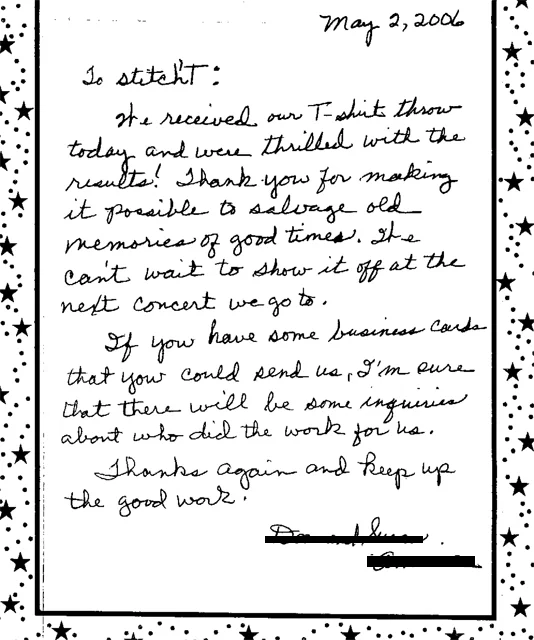 May 2, 2006
To Stitch'T:
We received our T-shirt throw
today and were thrilled with the
results! Thank you for making
it possible to salvage old
memories of good times. We
can't wait to show it off at the
next concert we go to.
If you have some business cards
that you could send us, I'm sure
that there will be some inquiries
about who did the work for us.
Thanks again and keep up
the good work.